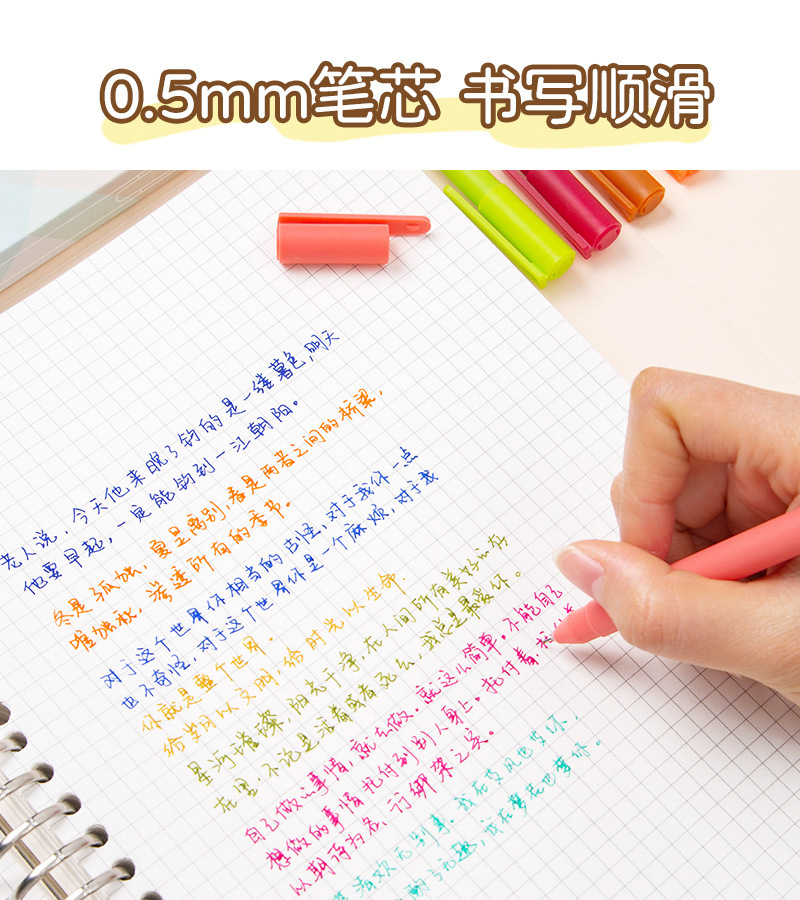 0.5mm笔芯 书写顺滑
老人说,今天他来晚了钓的是一缕暮色,明天
他要早起,一定能钓到一江朝阳。
冬是孤独,夏是离别,春是两者之间的桥梁,
唯独秋,渗透所有的季节。
对于这个世界你相当的古怪,对于我你一点
也不奇怪,对于这个世界你是一个麻烦,对于我
你就是整个世界。
给岁月以文明,给时光以生命.
星河璀璨,阳光千字,在人间所有美好的
在里,不论是活着或者死去 我总是最爱你。
自己做的事情,就去做,就这么简单。不能自己
想做的事情托付到别人身上。托付着
以期待为名、行绑架之实。
喜欢无别事、我在